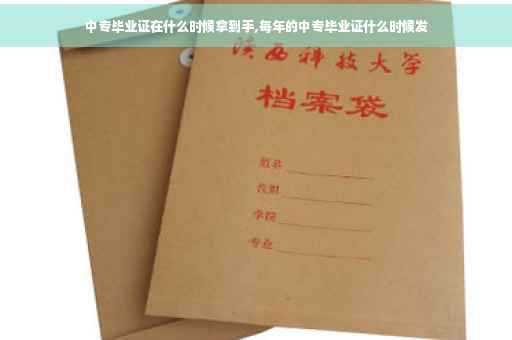 中专毕业证在什么时候拿到手,每年的中专毕业证什么时候发
陕西科技大学
档案袋
姓名
学院
专业